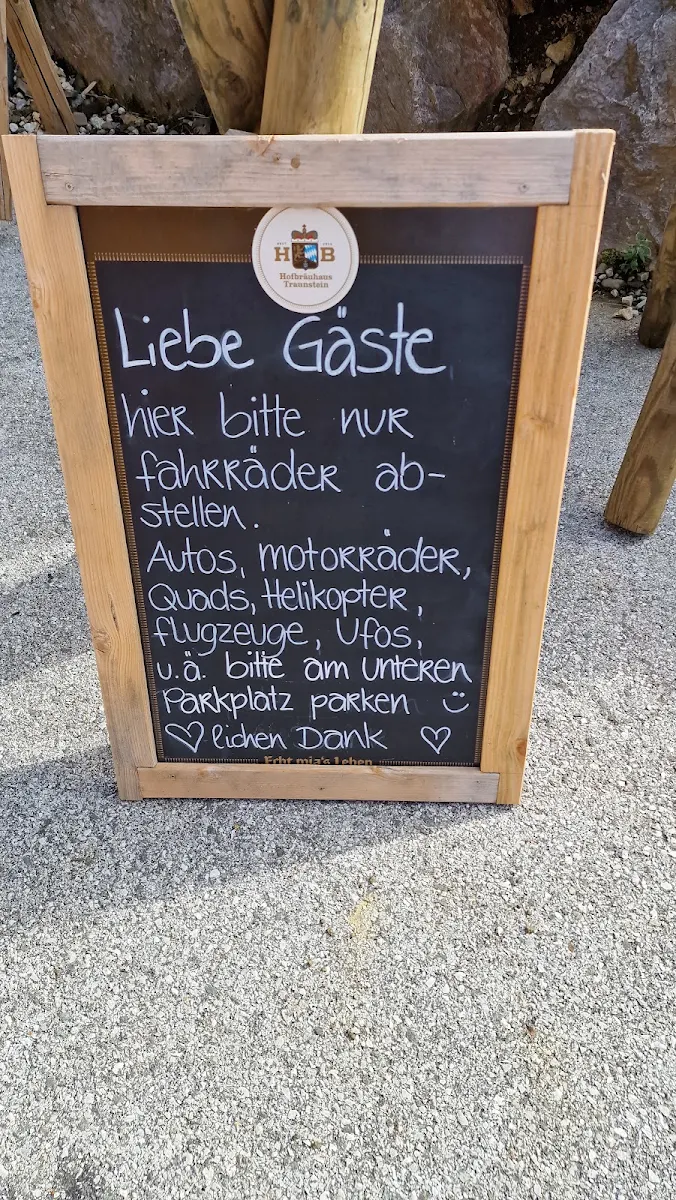 H B
Hofbräuhaus
Traunstein
Liebe Gäste
hier bitte nur
fahrräder ab-
stellen.
Autos, motorräder,
Quads, Helikopter,
flugzeuge, Ufos,
u.ä. bitte am unteren
Parkplatz parken :)
♡lichen Dank ♡
Echt mia's Leben